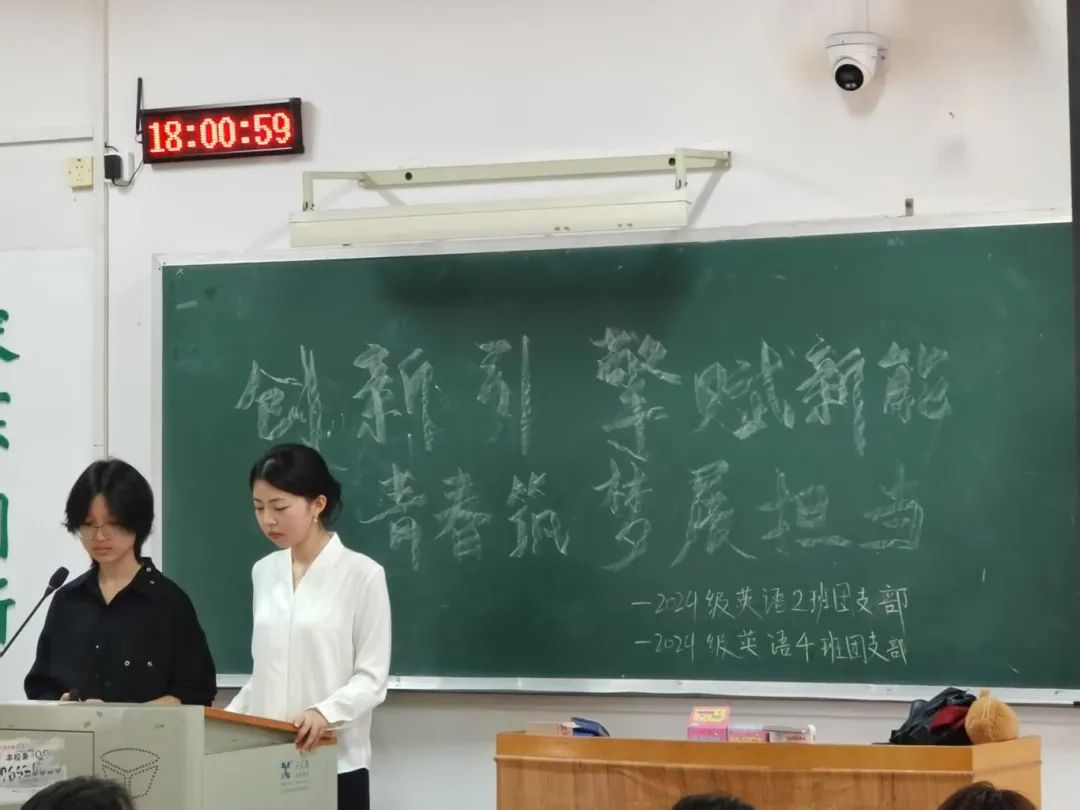 18:00:59
创新引擎赋新能
青春筑梦展担当
—2024级英语2班团支部
—2024级英语4班团支部